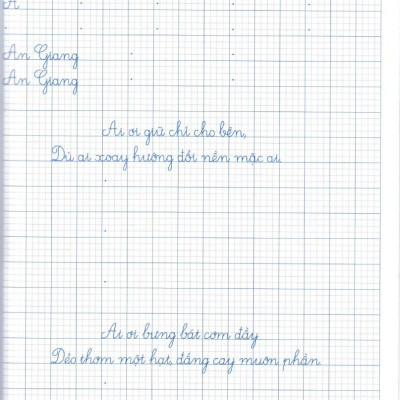 A
An Giang
An Giang
Ai ơi giữ chí cho bền,
Dù ai xoay hướng đổi nền mặc ai.
Ai ơi bưng bát cơm đầy
Dẻo thơm một hạt, đắng cay muôn phần.